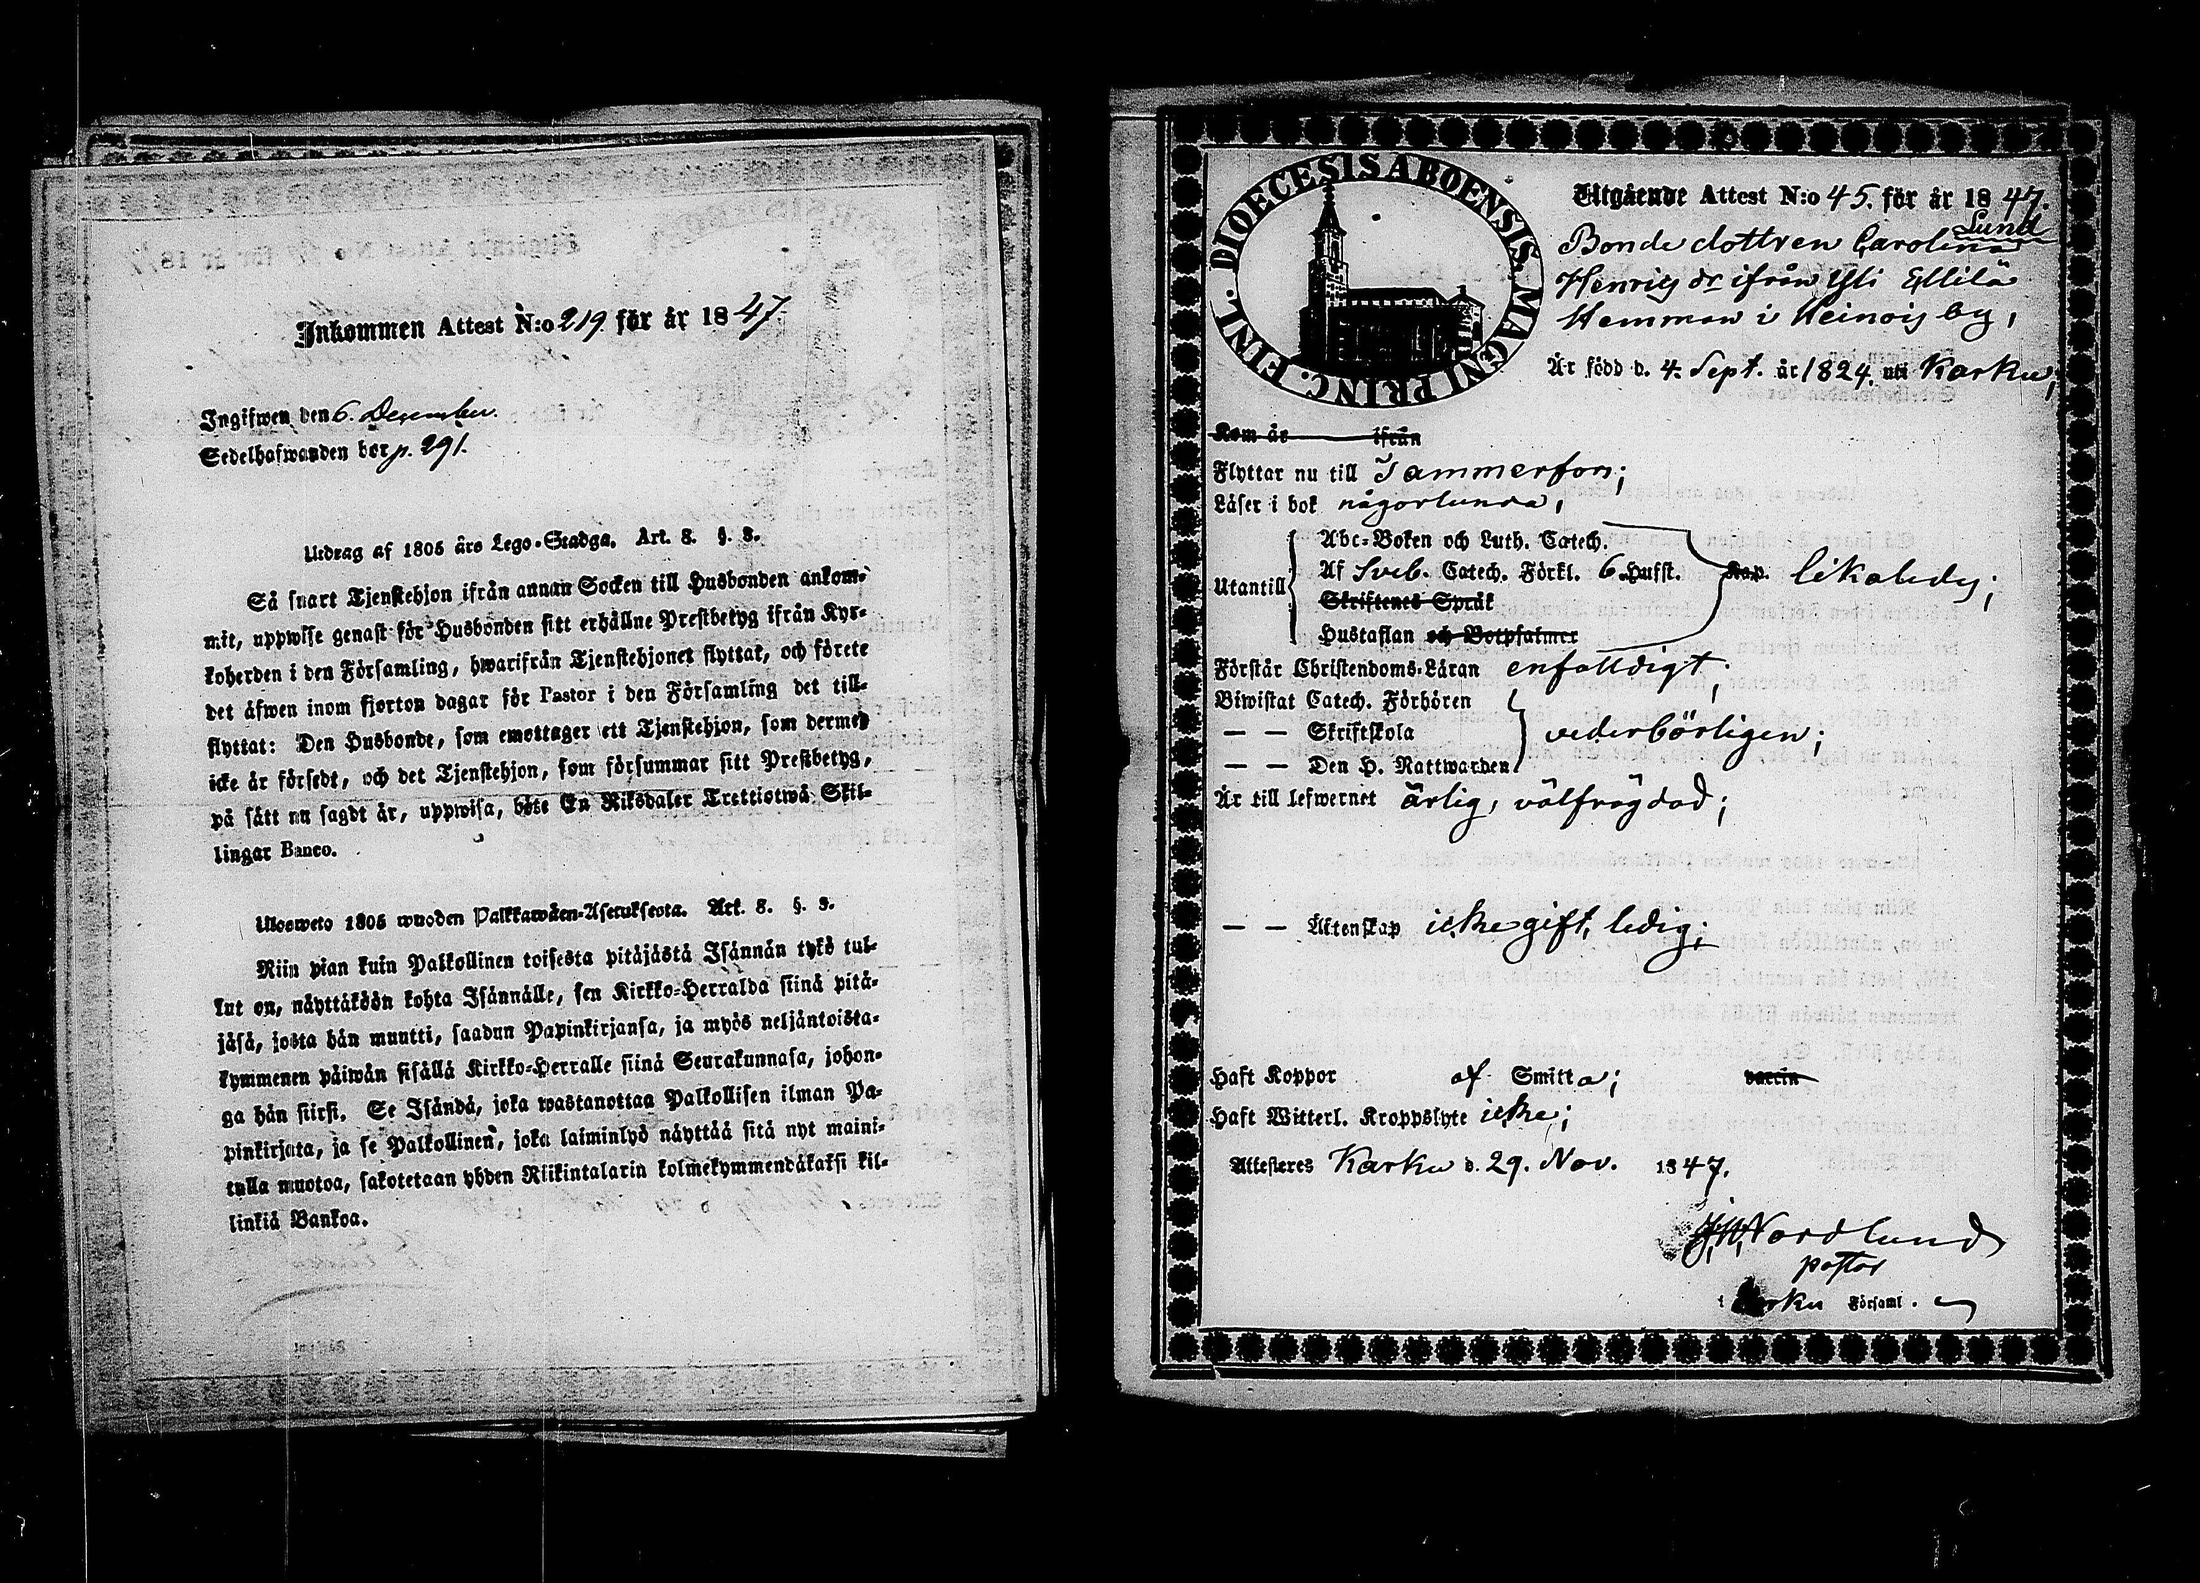 Inkommen Attest N:o 219 för år 1847.
Ingifwen den 6. December.
Sedelhafwanden bor p. 291.
Utdrag af 1805 års Lego-Stadga. Art. 8. §. 8.
Så snart Tjenstehjon ifrån annan Socken till Husbonden ankom-
mit, uppwise genast för Husbonden sitt erhållne Prestbetyg ifrån Kyr-
koherden i den Församling, hwarifrån Tjenstehjonet flyttat, och förete
det äfwen inom fjorton dagar för Pastor i den Församling det till-
flyttat: Den Husbonde, som emottager ett Tjenstehjon, som dermed
icke är försedt, och det Tjenstehjon, som försummar sitt Prestbetyg,
på sätt nu sagdt är, uppwisa, böte En Riksdaler Trettiotwå Skil-
lingar Banco.
Ulosweto 1805 wuoden Palkkawäen-Asetuksesta. Art. 8. §. 8.
Niin pian kuin Palkollinen toisesta pitäjästä Isännän tykö tul-
lut on, näyttäköön kohta Isännälle, sen Kirkko-Herralda siinä pitä-
jäsä, josta hän muutti, saadun Papinkirjansa, ja myös neljäntoista-
kymmenen päiwän sisällä Kirkko-Herralle siinä Seurakunnasa, johon-
ga hän siirsi. Se Isändä, joka wastanottaa Palkollisen ilman Pa-
pinkirjata, ja se Palkollinen, joka laiminlyö näyttää sitä nyt maini-
tulla muotoa, sakotetaan yhden Riikintalarin kolmekymmendäkaksi kil-
linkiä Bankoa.
DIOECESIS ABOENSIS. MAGNI PRINC. FINL.
Utgående Attest N:o 45. för år 1847.
Lund
Bonde dottren Carolina
Henrics dr ifrån Yli Ellilä
Hemman i Heinois by,
Är född d. 4. Sept. år 1824. uti Karku;
Kom år ifrån
Flyttar nu till Tammerfors;
Läser i bok någorlunda,
Abc-Boken och Luth. Catech.
Utantill Af Sveb. Catech. Förkl. 6 Hufst. Kap. likaledes;
Skriftenes Språk
Hustaflan och Botpsalmer
Förstår Christendoms-Läran enfalldigt;
Biwistat Catech. Förhören
— — Skriftskola vederbörligen;
— — Den H. Nattwarden
Är till lefwernet ärlig, välfrägdad;
— — Äktenskap icke gift, ledig;
Haft Koppor af Smitta; vaccin
Haft Witterl. Kroppslyte icke;
Attesteres Karku d. 29. Nov. 1847.
Nordlund
pastor
i Karku Församl.